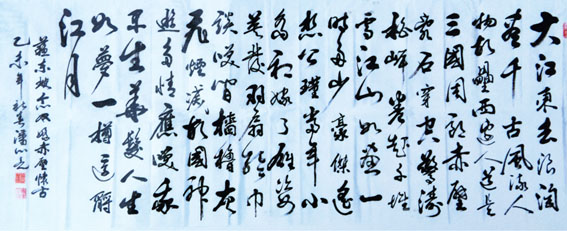 大江東去浪淘
盡千古風流人
物故壘西邊人道是
三國周郎赤壁
亂石穿空驚濤
拍岸捲起千堆
雪江山如畫一
時多少豪傑遙
想公瑾當年小
喬初嫁了雄姿
英發羽扇綸巾
談笑間檣櫓灰
飛煙滅故國神
遊多情應笑我
早生華髮人生
如夢一樽還酹
江月
蘇東坡念奴嬌赤壁懷古
乙未年新春